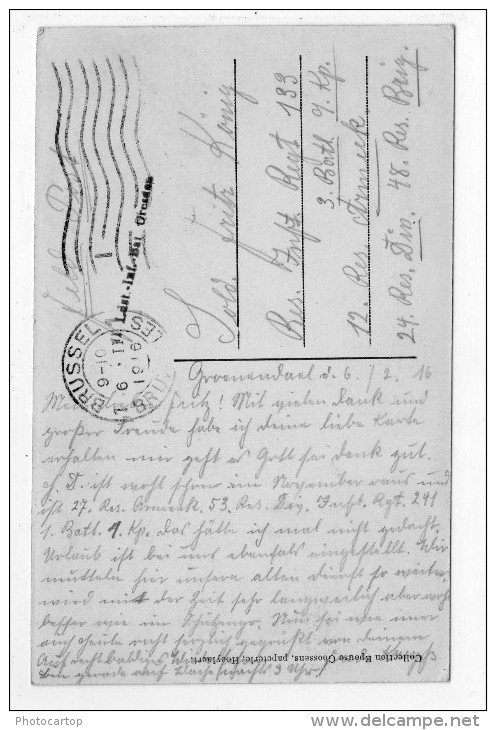 Feld Post
BRUSSEL
9-10
BRUXELLES
Ldst.-Inf.-Bat. Dresden
Sold. Fritz König
Res. Inft. Regt 133
3. Batl 9. Kp.
12. Res. Armeek
24. Res. Div. 48. Res. Brig.
Groenendael d. 6./2. 16
Mein lieber Fritz! Mit vielen Dank und
großer Freude habe ich deine liebe Karte
erhalten mir geht es Gott sei dank gut.
ist wohl schon am November raus und
ist 27. Res. Armeek. 53. Res. Div. Inft. Rgt. 241
1. Batl. 1. Kp. das hätte ich mal nicht gedacht.
Urlaub ist bei uns ebenfalls eingestellt. Wir
hier unsern alten dienst so weiter,
wird mit der Zeit sehr langweilig aber
besser wie im Schützengr. Nun sei wie immer
auch heute recht herzlich gegrüßt von deinem
Auf recht baldiges
bin gerade auf 3 Uhr
Collection Epouse Goossens, papeterie, Hoeylaert.
Photocartop
www.delcampe.net